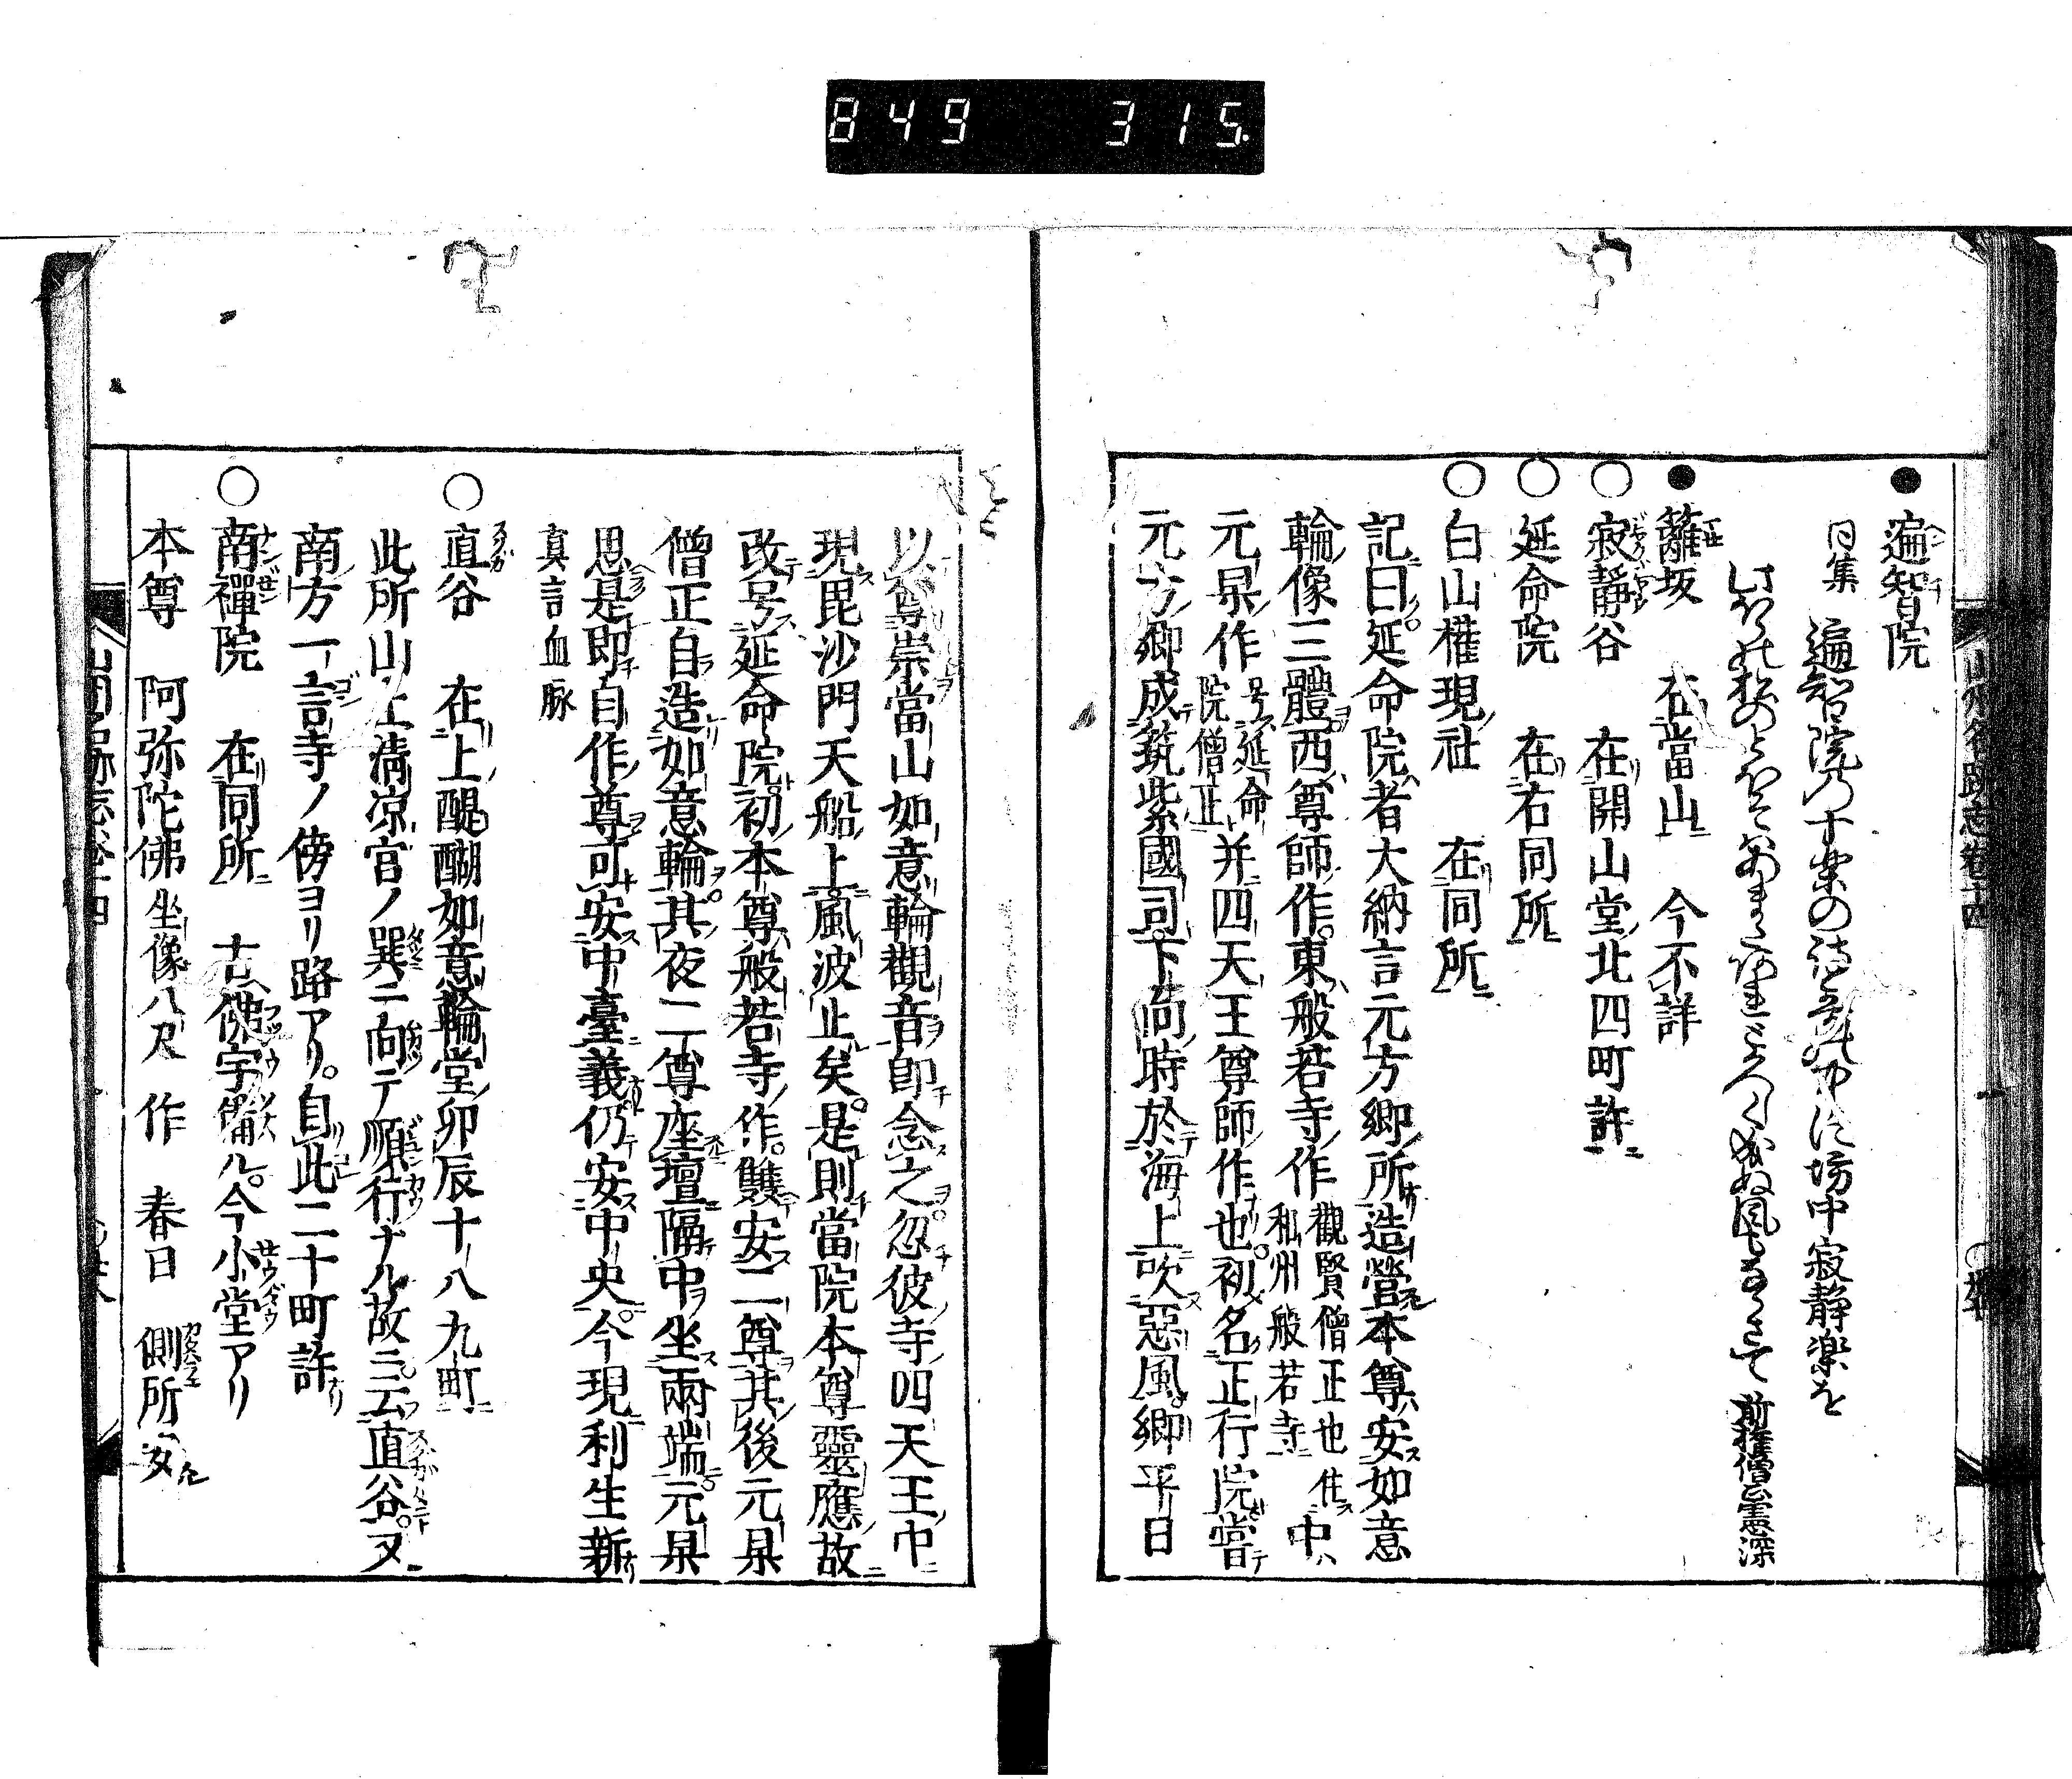 849 315
●遍智院
同集 遍智院の
坊中寂静楽を
前権僧正憲深
●籬坂 在當山 今不詳
○寂靜谷 在開山堂北四町許
○延命院 在右同所
○白山權現社 在同所
記曰延命院者大納言元方卿所造營本尊安如意
輪像三體西尊師作東般若寺作 觀賢僧正也住和州般若寺 中ハ
元杲作 号延命院僧正 并四天王尊師作也初名正行院當
元方卿成筑紫國司下向時於海上吹惡風卿平日
以尊崇當山如意輪觀音即念之忽彼寺四天王巾
現毘沙門天船上風波止矣是則當院本尊靈應故
改号延命院初本尊般若寺作雙安二尊其後元杲
僧正自造如意輪其夜二尊座壇隔中坐兩端元杲
思是即自作尊可安中臺義仍安中央今現利生新
真言血脉
○直谷 在上醍醐如意輪堂卯辰十八九町
此所山上清凉宮ノ巽ニ向テ順行ナル故ニ云直谷又
南方一言寺ノ傍ヨリ路アリ自此二十町許
○南禪院 在同所 古佛宇備ル今小堂アリ
本尊 阿弥陀佛 坐像八尺 作 春日 側所安
山州名跡志卷十四